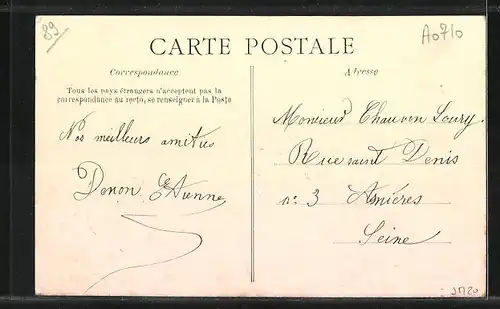 89
A0710
CARTE POSTALE
Correspondance
Adresse
Tous les pays étrangers n'acceptent pas la
correspondance au recto, se renseigner à la Poste
Nos meilleurs amitiés
Denon Etienne
Monsieur Chauvin Loury.
Rue saint Denis
n: 3 Asnières
Seine